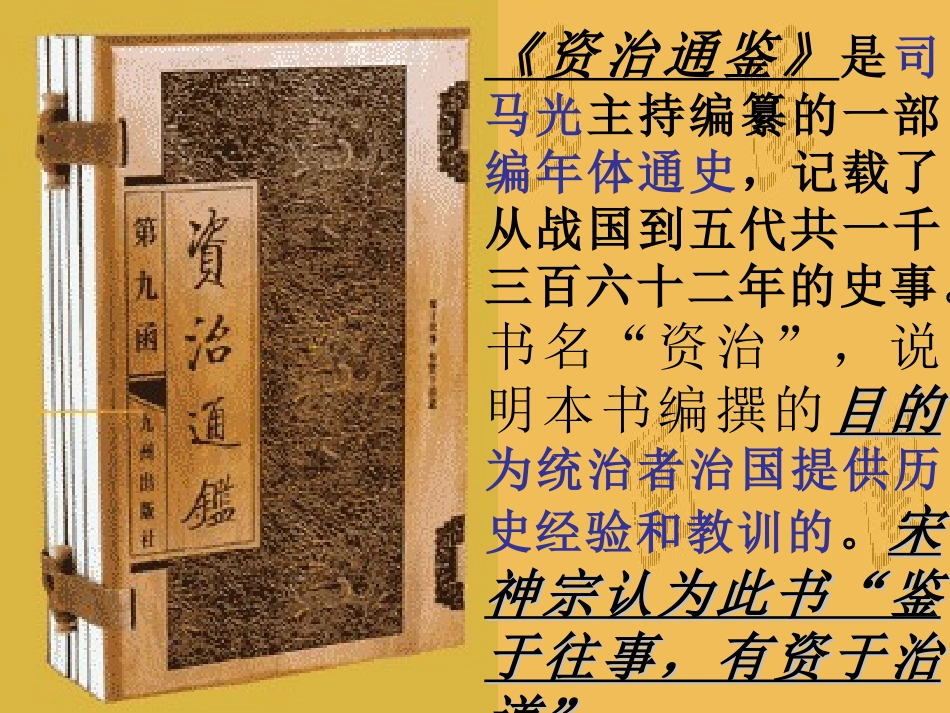 第九函
資治通鑑
九州出版社
《资治通鉴》是司
马光主持编纂的一部
编年体通史，记载了
从战国到五代共一千
三百六十二年的史事。
书名“资治”，说
明本书编撰的目的
为统治者治国提供历
史经验和教训的。宋
神宗认为此书“鉴
于往事，有资于治
道”